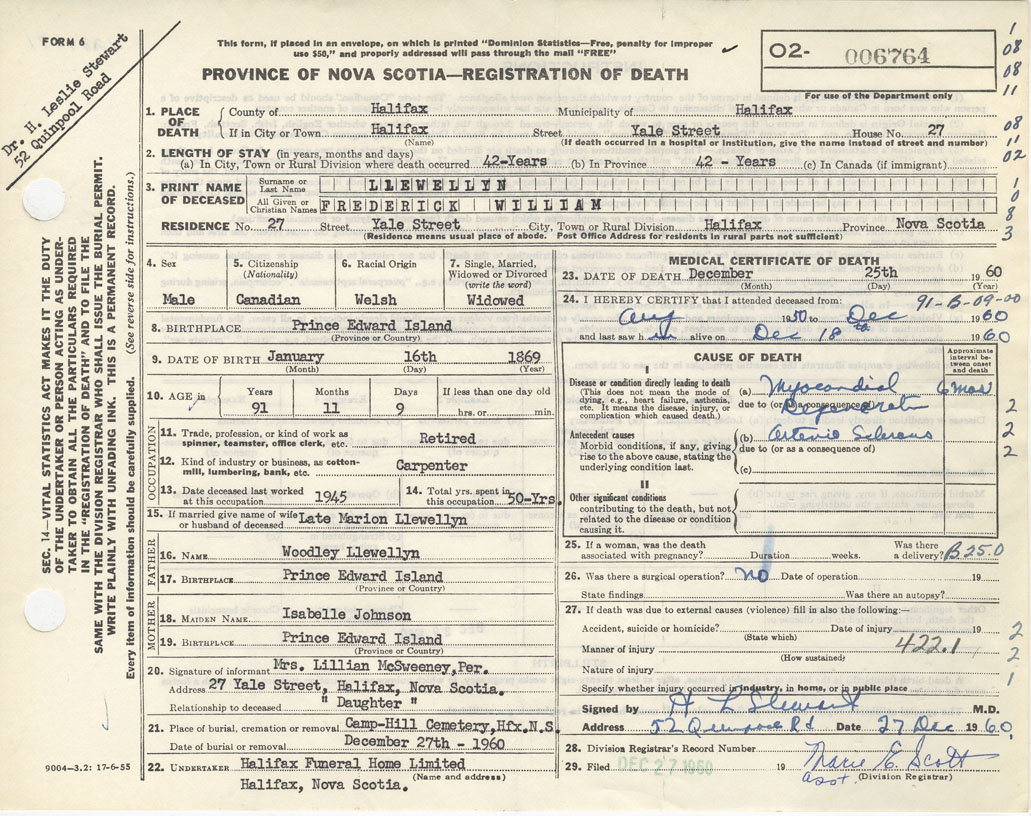 FORM 6
Dr. H. Leslie Stewart
52 Quinpool Road
This form, if placed in an envelope, on which is printed "Dominion Statistics—Free, penalty for improper
use $50," and properly addressed will pass through the mail "FREE"
PROVINCE OF NOVA SCOTIA—REGISTRATION OF DEATH
O2- 006764
For use of the Department only
1
08
08
11
08
11
02
1
0
8
3
1. PLACE OF DEATH { County of Halifax Municipality of Halifax
If in City or Town Halifax Street Yale Street House No. 27
(Name) (If death occurred in a hospital or institution, give the name instead of street and number)
2. LENGTH OF STAY (in years, months and days)
(a) In City, Town or Rural Division where death occurred 42-Years (b) In Province 42 - Years (c) In Canada (if immigrant)
3. PRINT NAME OF DECEASED { Surname or Last Name LLEWELLYN
All Given or Christian Names FREDERICK WILLIAM
RESIDENCE No. 27 Street Yale Street City, Town or Rural Division Halifax Province Nova Scotia
(Residence means usual place of abode. Post Office Address for residents in rural parts not sufficient)
4. Sex Male
5. Citizenship (Nationality) Canadian
6. Racial Origin Welsh
7. Single, Married, Widowed or Divorced (write the word) Widowed
8. BIRTHPLACE Prince Edward Island
(Province or Country)
9. DATE OF BIRTH January 16th 1869
(Month) (Day) (Year)
10. AGE in Years 91 Months 11 Days 9 If less than one day old hrs. or min.
OCCUPATION
11. Trade, profession, or kind of work as spinner, teamster, office clerk, etc. Retired
12. Kind of industry or business, as cotton-mill, lumbering, bank, etc. Carpenter
13. Date deceased last worked at this occupation 1945
14. Total yrs. spent in this occupation 50-Yrs.
15. If married give name of wife or husband of deceased Late Marion Llewellyn
FATHER
16. NAME Woodley Llewellyn
17. BIRTHPLACE Prince Edward Island
(Province or Country)
MOTHER
18. MAIDEN NAME Isabelle Johnson
19. BIRTHPLACE Prince Edward Island
(Province or Country)
20. Signature of informant Mrs. Lillian McSweeney, Per.
Address 27 Yale Street, Halifax, Nova Scotia.
Relationship to deceased " Daughter "
21. Place of burial, cremation or removal Camp-Hill Cemetery, Hfx.N.S.
Date of burial or removal December 27th - 1960
22. UNDERTAKER Halifax Funeral Home Limited
(Name and address)
Halifax, Nova Scotia.
MEDICAL CERTIFICATE OF DEATH
23. DATE OF DEATH December 25th 1960
(Month) (Day) (Year)
24. I HEREBY CERTIFY that I attended deceased from: 91-B-09-00
Aug 1950 to Dec 1960
and last saw him alive on Dec 18th 1960
CAUSE OF DEATH
Approximate interval between onset and death
I
Disease or condition directly leading to death
(This does not mean the mode of dying, e.g., heart failure, asthenia, etc. It means the disease, injury, or complication which caused death.)
(a) Myocardial 6 mos
due to (or as a consequence of)
Antecedent causes
Morbid conditions, if any, giving rise to the above cause, stating the underlying condition last.
(b) Arterio Sclerosis
due to (or as a consequence of)
(c)
II
Other significant conditions contributing to the death, but not related to the disease or condition causing it.
2
2
2
25. If a woman, was the death associated with pregnancy? Duration weeks. Was there a delivery? B.25.0
26. Was there a surgical operation? no Date of operation 19
State findings Was there an autopsy?
27. If death was due to external causes (violence) fill in also the following:—
Accident, suicide or homicide? Date of injury 19
(State which)
Manner of injury 422.1
(How sustained)
Nature of injury
Specify whether injury occurred in industry, in home, or in public place
2
2
1
Signed by H L Stewart M.D.
Address 52 Quinpool Rd Date 27 Dec 1960
28. Division Registrar's Record Number
29. Filed DEC 27 1960 19 Marie E. Scott
asst. (Division Registrar)
SEC. 14—VITAL STATISTICS ACT MAKES IT THE DUTY
OF THE UNDERTAKER OR PERSON ACTING AS UNDER-
TAKER TO OBTAIN ALL THE PARTICULARS REQUIRED
IN THE "REGISTRATION OF DEATH" AND TO FILE THE
SAME WITH THE DIVISION REGISTRAR WHO SHALL ISSUE THE BURIAL PERMIT.
WRITE PLAINLY WITH UNFADING INK. THIS IS A PERMANENT RECORD.
Every item of information should be carefully supplied. (See reverse side for instructions.)
9004—3.2: 17-6-55